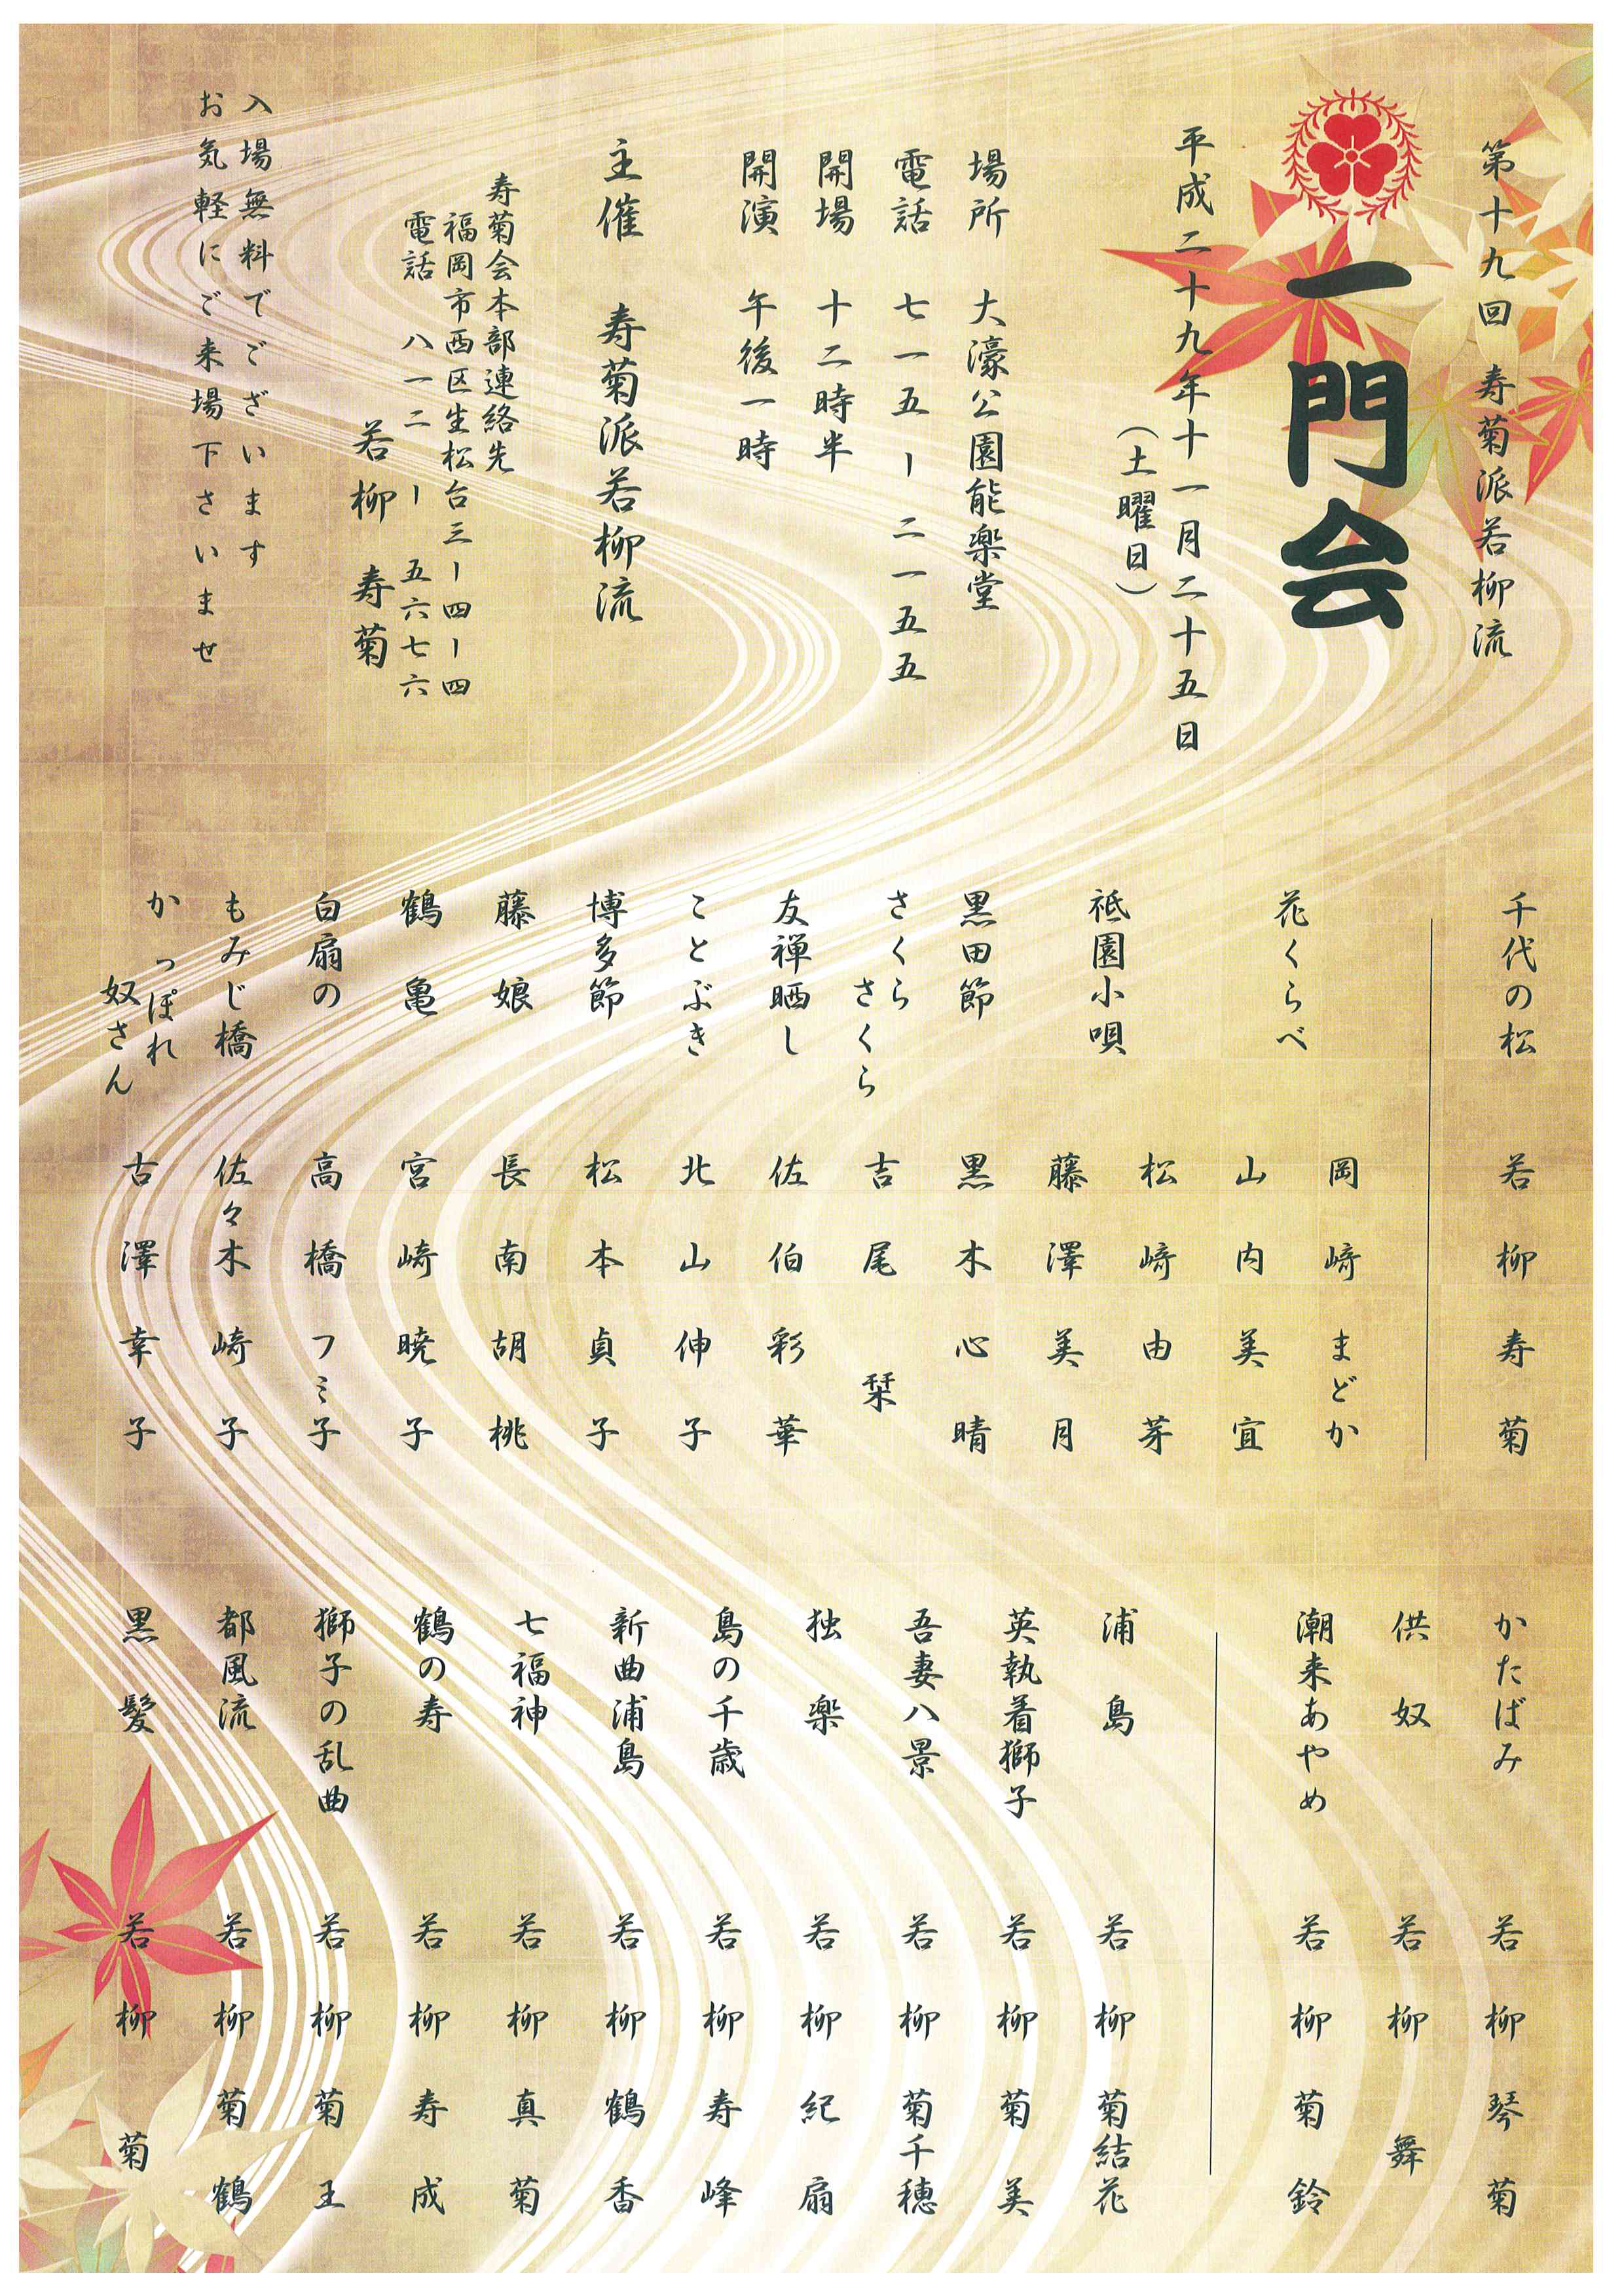 第十九回 寿菊派若柳流
一門会
平成二十九年十一月二十五日
（土曜日）
場所 大濠公園能楽堂
電話 七一五ー二一五五
開場 十二時半
開演 午後一時
主催 寿菊派若柳流
寿菊会本部連絡先
福岡市西区生松台三ー四ー四
電話 八一二ー五六七六
若柳 寿菊
入場無料でございます
お気軽にご来場下さいませ
千代の松 若柳寿菊
花くらべ 岡﨑まどか
山内美宜
松﨑由芽
祗園小唄 藤澤美月
黒田節 黒木心晴
さくらさくら 吉尾栞
友禅晒し 佐伯彩華
ことぶき 北山伸子
博多節 松本貞子
藤娘 長南胡桃
鶴亀 宮崎暁子
白扇の 高橋フミ子
もみじ橋 佐々木崎子
かっぽれ
奴さん 古澤幸子
かたばみ 若柳琴菊
供奴 若柳舞
潮来あやめ 若柳菊鈴
浦島 若柳菊結花
英執着獅子 若柳菊美
吾妻八景 若柳菊千穂
独楽 若柳紀扇
島の千歳 若柳寿峰
新曲浦島 若柳鶴香
七福神 若柳真菊
鶴の寿 若柳寿成
獅子の乱曲 若柳菊王
都風流 若柳菊鶴
黒髪 若柳菊